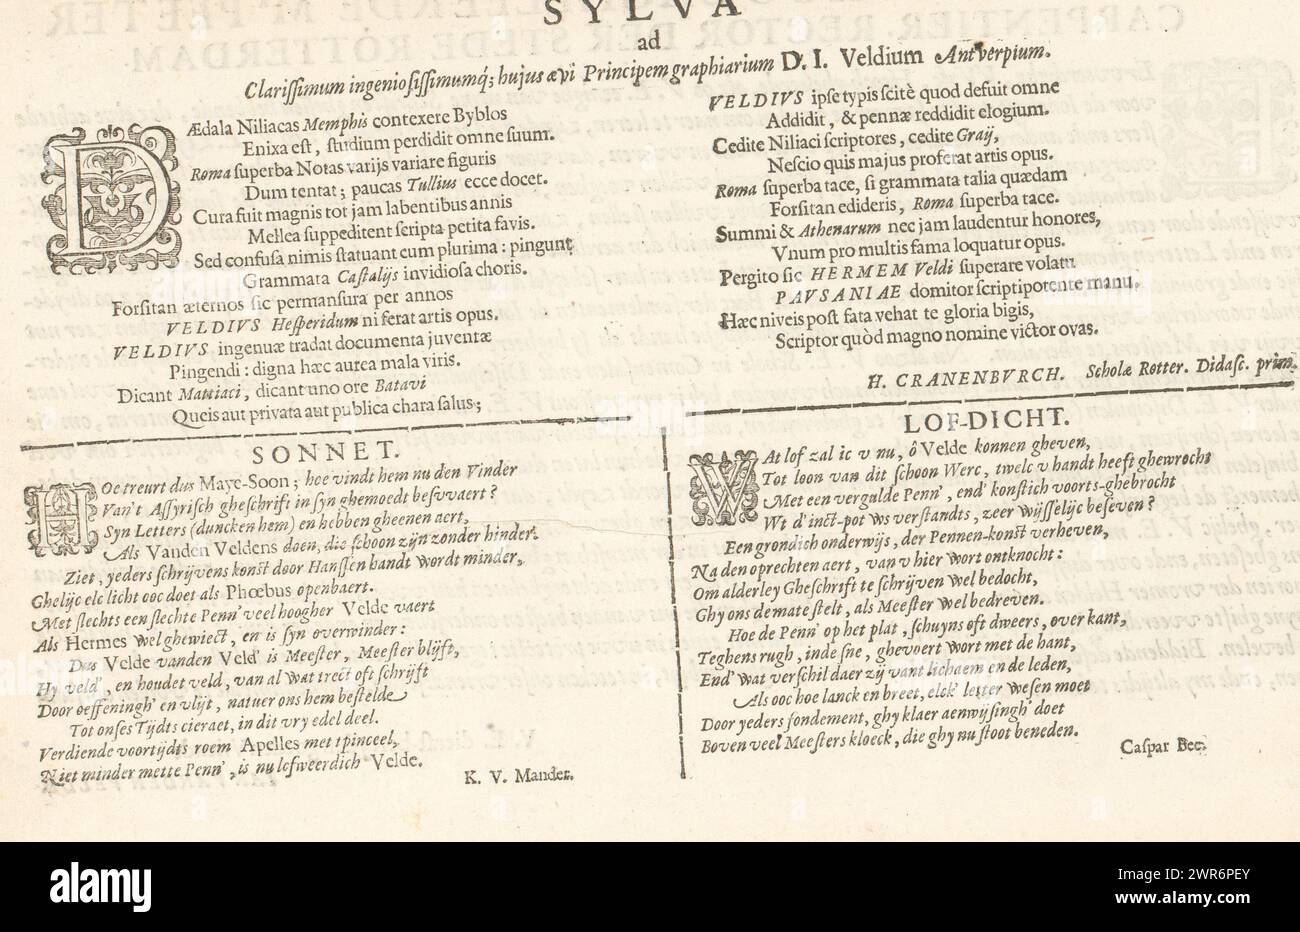 SYLVA
ad
Clarissimum ingeniosissimumq́; hujus ævi Principem graphiarium D. I. Veldium Antverpium.
DÆdala Niliacas Memphis contexere Byblos
Enixa est, studium perdidit omne suum.
Roma superba Notas varijs variare figuris
Dum tentat; paucas Tullius ecce docet.
Cura fuit magnis tot jam labentibus annis
Mellea suppeditent scripta petita favis.
Sed confusa nimis statuant cum plurima: pingunt
Grammata Castalijs invidiosa choris.
Forsitan æternos sic permansura per annos
VELDIVS Hesperidum ni ferat artis opus.
VELDIVS ingenuæ tradat documenta juventæ
Pingendi: digna hæc aurea mala viris.
Dicant Mattiaci, dicant uno ore Batavi
Queis aut privata aut publica chara salus;
VELDIVS ipse typis scitè quod defuit omne
Addidit, & pennæ reddidit elogium.
Cedite Niliaci scriptores, cedite Graij,
Nescio quis majus proferat artis opus.
Roma superba tace, si grammata talia quædam
Forsitan edideris, Roma superba tace.
Summi & Athenarum nec jam laudentur honores,
Vnum pro multis fama loquatur opus.
Pergito sic HERMEM Veldi superare volatu
PAVSANIAE domitor scriptipotente manu,
Hæc niveis post fata vehat te gloria bigis,
Scriptor quòd magno nomine victor ovas.
H. CRANENBVRCH. Scholæ Rotter. Didasc. prim.
SONNET.
HOe treurt dus Maye-Soon; hoe vindt hem nu den Vinder
Van't Assyrisch gheschrift in syn ghemoedt beswaert?
Syn Letters (duncken hem) en hebben gheenen aert,
Als Vanden Veldens doen, die schoon zijn zonder hinder.
Ziet, yeders schrijvens konst door Hanssen handt wordt minder,
Ghelijc elc licht ooc doet als Phœbus openbaert.
Met slechts een slechte Penn' veel hoogher Velde vaert
Als Hermes wel ghewiect, en is syn overwinder:
Dus Velde vanden Veld' is Meester, Meester blijft,
Hy veld', en houdet veld, van al wat trect oft schrijft
Door oeffeningh' en vlijt, natuer ons hem bestelde
Tot onses Tijdts cieraet, in dit vry edel deel.
Verdiende voortijdts roem Apelles met tpinceel,
Niet minder mette Penn', is nu lofweerdich Velde.
K. V. Mander.
LOF-DICHT.
WAt lof zal ic v nu, ô Velde konnen gheven,
Tot loon van dit schoon Werc, twelc v handt heeft ghewrocht
Met een vergulde Penn', end' konstich voorts-ghebrocht
Wt d'inct-pot ws verstandts, zeer wijsselijc beseven?
Een grondich onderwijs, der Pennen-konst verheven,
Na den oprechten aert, van v hier wort ontknocht:
Om alderley Gheschrift te schrijven wel bedocht,
Ghy ons de mate stelt, als Meester wel bedreven.
Hoe de Penn' op het plat, schuyns oft dweers, over kant,
Teghens rugh, inde sne, ghevoert wort met de hant,
End' wat verschil daer zy vant lichaem en de leden,
Als ooc hoe lanck en breet, elck' letter wesen moet
Door yeders fondement, ghy klaer aenwijsingh' doet
Boven veel Meesters kloeck, die ghy nu stoot beneden.
Caspar Bec.
alamy
Image ID: 2WR6PEY
www.alamy.com